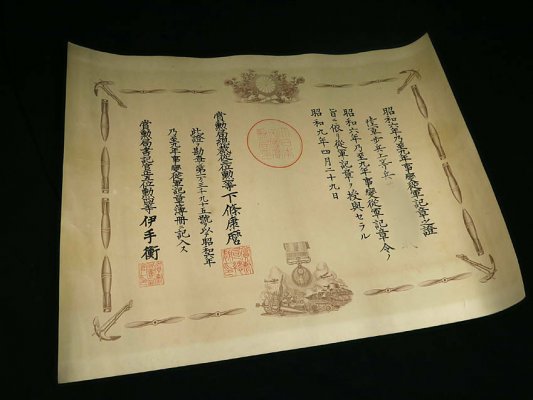 昭和六年乃至九年事變從軍記章之證
陸軍歩兵上等兵
昭和六年乃至九年事變從軍記章ノ令ノ
旨ニ依リ從軍記章ヲ授與セラル
昭和九年四月二十九日
賞勲局總裁從三位勲二等下條康麿
此證ヲ勘査シ第
號ヲ以テ昭和六年
乃至九年事變從軍記章簿冊ニ記入ス
賞勲局書記官正五位勲四等伊手衡